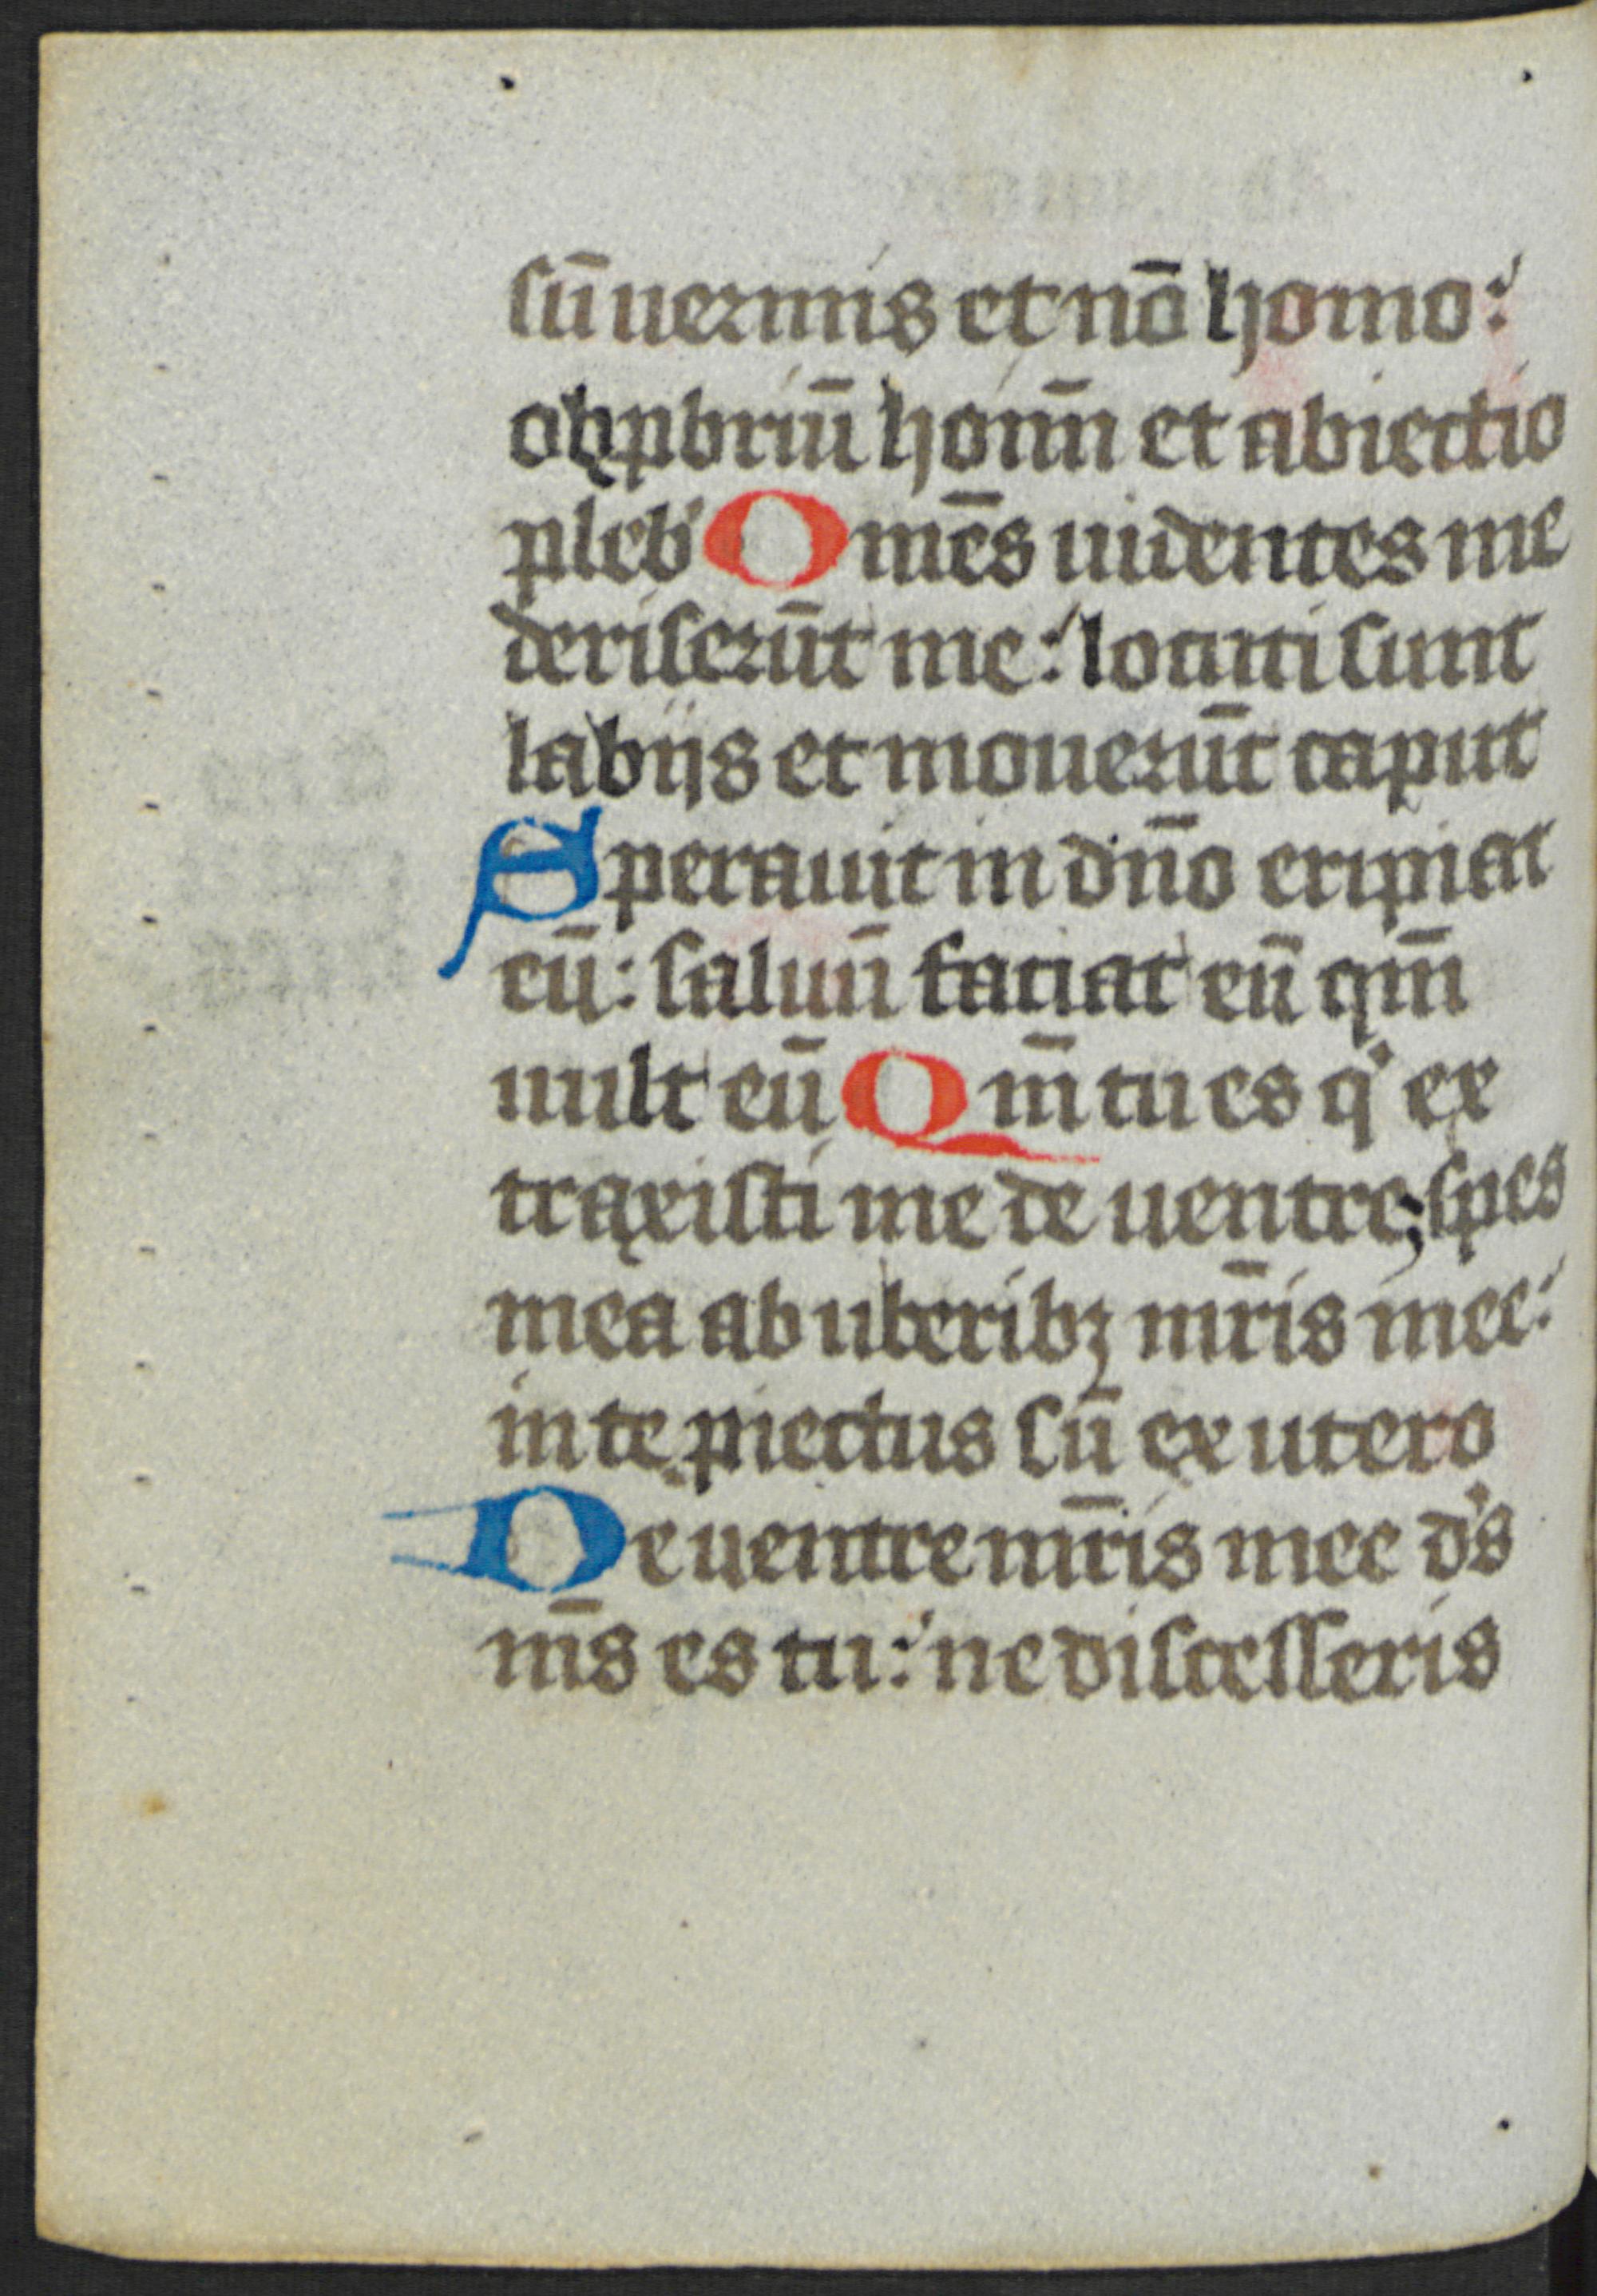 sū uermis et nō homo:
obꝓbriū homī et abiectio
pleb' Omēs uidentes me
deriserūt me: locuti sunt
labijs et mouerūt caput
Sperauit in dn̄o eripiat
eū: saluū faciat eū qm̄
uult eū Qm̄ tu es q' ex
traxisti me de uentre; spes
mea ab uberibꝫ mr̄is mee:
in te ꝓiectus sū ex utero
De uentre mr̄is mee d's
ms̄ es tu: ne discesseris